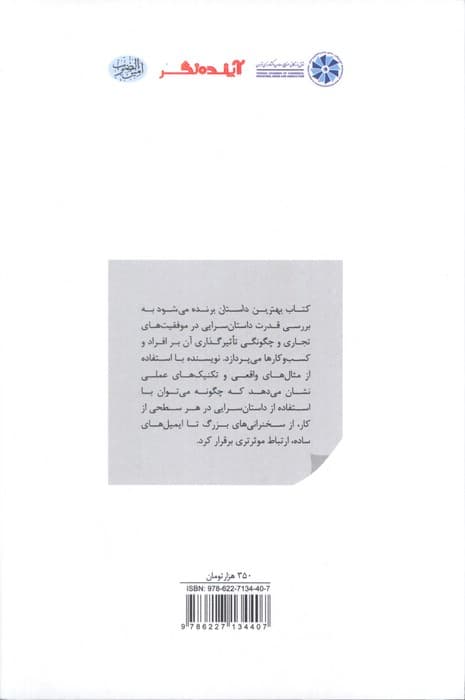 آینده‌نگر
امین‌الضرب
کتاب بهترین داستان برنده می‌شود به
بررسی قدرت داستان‌سرایی در موفقیت‌های
تجاری و چگونگی تأثیرگذاری آن بر افراد و
کسب‌وکارها می‌پردازد. نویسنده با استفاده
از مثال‌های واقعی و تکنیک‌های عملی
نشان می‌دهد که چگونه می‌توان با
استفاده از داستان‌سرایی در هر سطحی از
کار، از سخنرانی‌های بزرگ تا ایمیل‌های
ساده، ارتباط موثرتری برقرار کرد.
۳۵۰ هزار تومان
ISBN: 978-622-7134-40-7
9 786227 134407